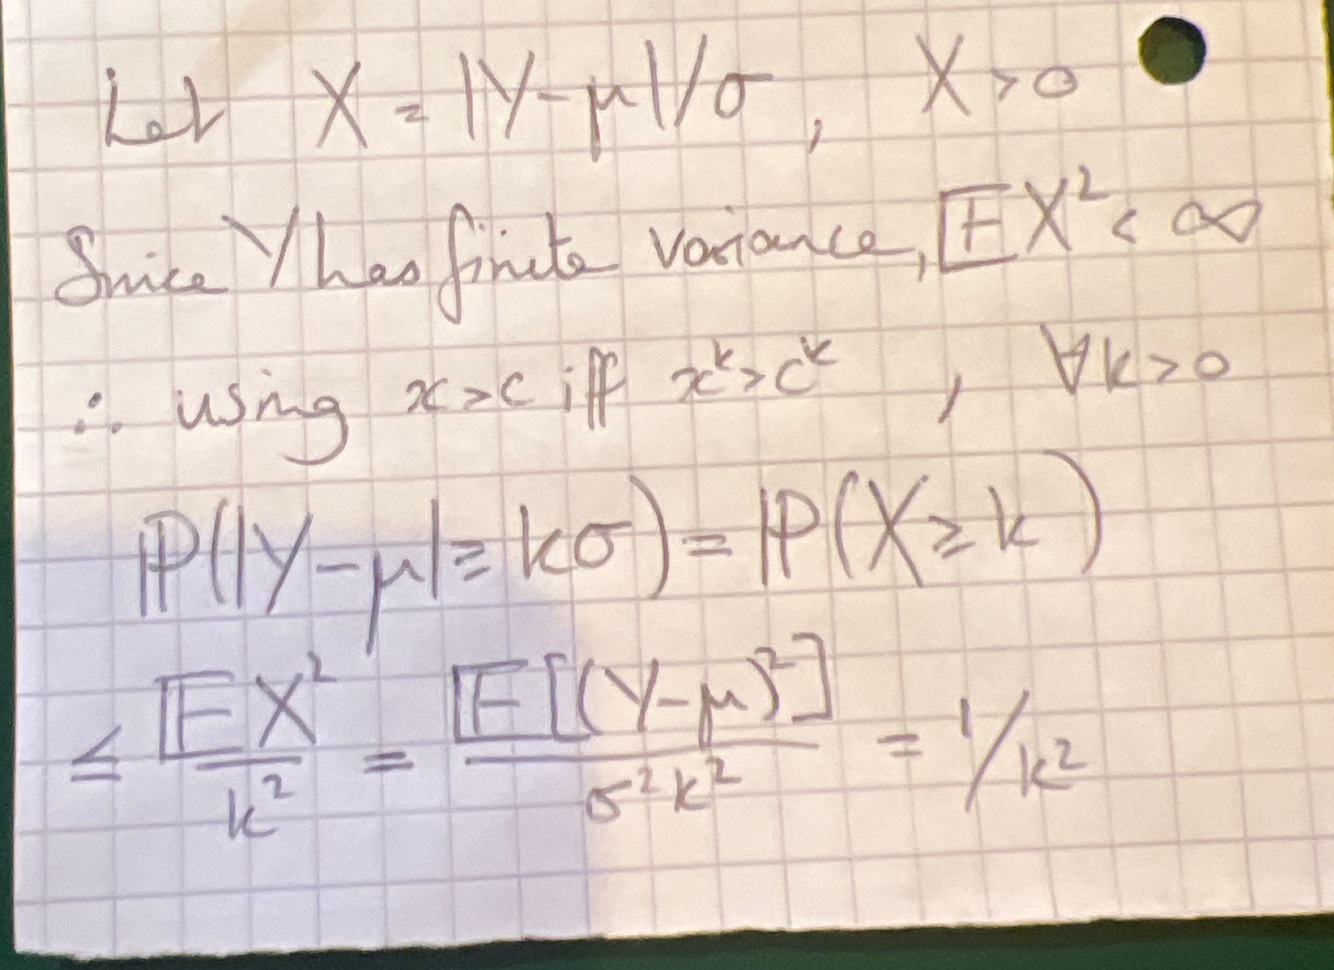 Let X = |Y-μ|/σ, X > 0
Since Y has finite variance, 𝔼X² < ∞
∴ using x>c iff xᵏ>cᵏ, ∀k>0
ℙ(|Y-μ| ≥ kσ) = ℙ(X ≥ k)
≤ 𝔼X²/k² = 𝔼[(Y-μ)²]/σ²k² = 1/k²